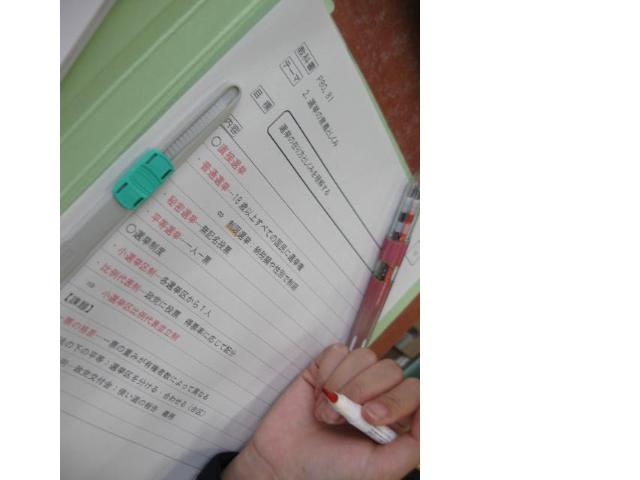 教科書 P80, 81
テーマ 2. 選挙の意義としくみ
目標 選挙の在り方としくみを理解する
内容
○直接選挙
・普通選挙―18歳以上すべての国民に選挙権
⇔ 制限選挙：納税額や性別で制限
・秘密選挙―無記名投票
・平等選挙―一人一票
○選挙制度
・小選挙区制―各選挙区から1人
・比例代表制―政党に投票 得票率に応じて配分
⇒ 小選挙区比例代表並立制
【課題】
一票の格差―一票の重みが有権者数によって異なる
の下の平等：選挙区を分ける 合わせる（合区）
政党交付金：使い道の報告